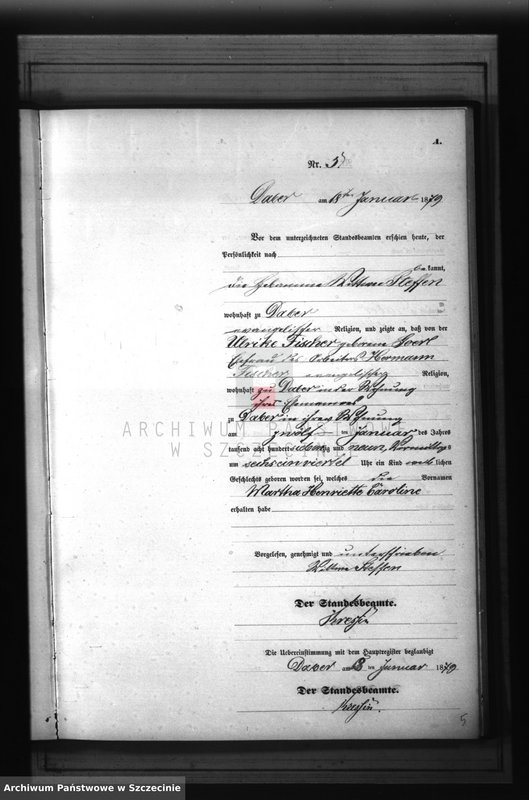 A.
Nr. 5
Daber am 13ten Januar 1879
Vor dem unterzeichneten Standesbeamten erschien heute, der
Persönlichkeit nach
kannt,
die Hebamme Wittwe Steffen
wohnhaft zu Daber
evangelischer Religion, und zeigte an, daß von der
Ulrike Fischer geborene
Ehefrau des Arbeiters Hermann
Fischer evangelischer Religion,
wohnhaft zu Daber in der Wohnung
ihres Ehemannes
zu Daber in ihrer Wohnung
am zwölf ten Januar des Jahres
tausend acht hundert siebenzig und neun, Vormittags
um sechseinviertel Uhr ein Kind weiblichen
Geschlechts geboren worden sei, welches die Vornamen
Martha Henriette Caroline
erhalten habe
Vorgelesen, genehmigt und unterschrieben
Wittwe Steffen
Der Standesbeamte.
Die Uebereinstimmung mit dem Hauptregister beglaubigt
Daber am 13 ten Januar 1879
Der Standesbeamte.
5
ARCHIWUM PAŃSTWOWE
W SZCZECINIE
Archiwum Państwowe w Szczecinie